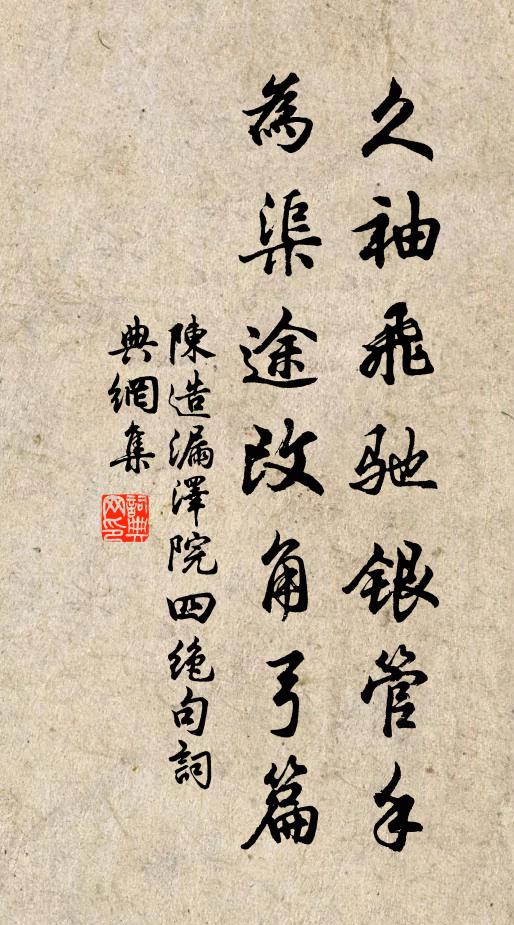 久袖飛馳銀管手
為渠途改角弓篇
陳造漏澤院四絶句詞
典網集
詞典
网印